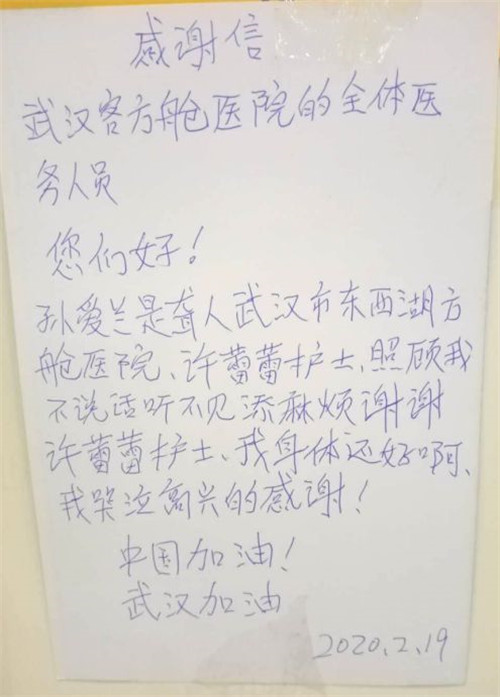 感谢信
武汉客方舱医院的全体医
务人员
您们好！
孙爱兰是聋人武汉市东西湖方
舱医院、许蕾蕾护士、照顾我
不说话听不见添麻烦谢谢
许蕾蕾护士、我身体还好啊、
我哭泣高兴的感谢！
中国加油！
武汉加油
2020.2.19